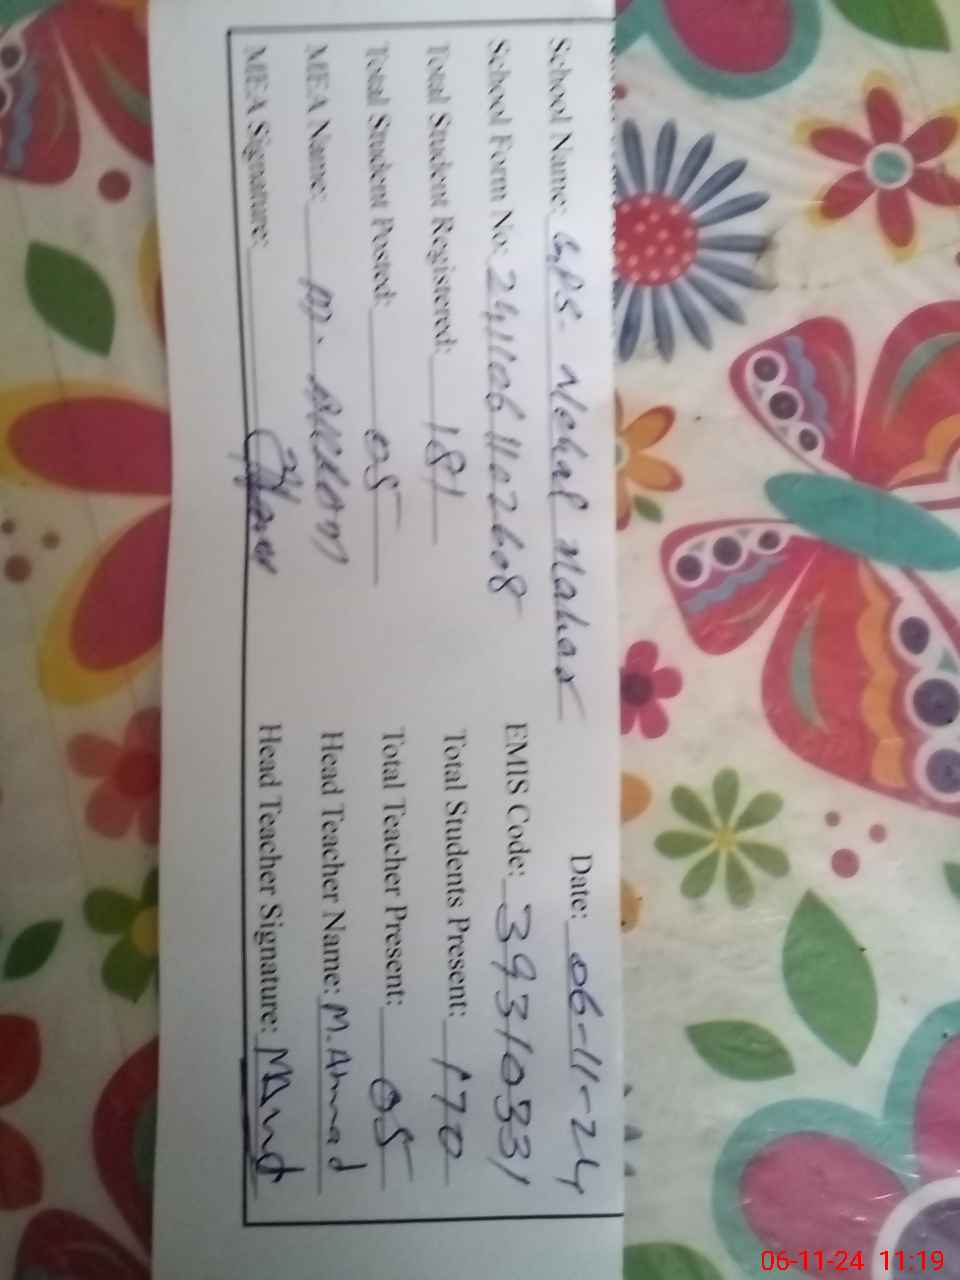 School Name: GPS. Mehal Mahar Date: 06-11-24
School Form No: 2411061102608 EMIS Code: 39310331
Total Student Registered: 181 Total Students Present: 170
Total Student Posted: 05 Total Teacher Present: 05
MEA Name: M. Head Teacher Name: M. Ahmad
MEA Signature: Head Teacher Signature:
06-11-24 11:19